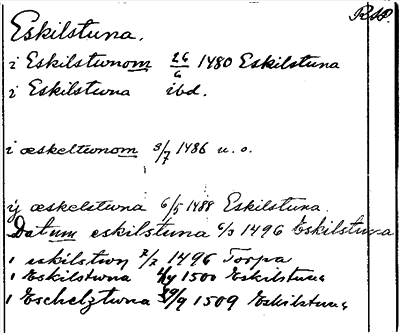 Eskilstuna.
i Eskilstunom 26/6 1480 Eskilstuna
i Eskilstwna ibd.
i æskeltwnom 3/7 1486 u. o.
ij æskelstwna 6/5 1488 Eskilstuna.
Datum eskilstuna 6/3 1496 Eskilstuna
i eskilstwn 7/7 1496 Torpa
i Eskilstwna 1500 Eskilstuna
i Eschelztwna /9 1509 Eskilstuna